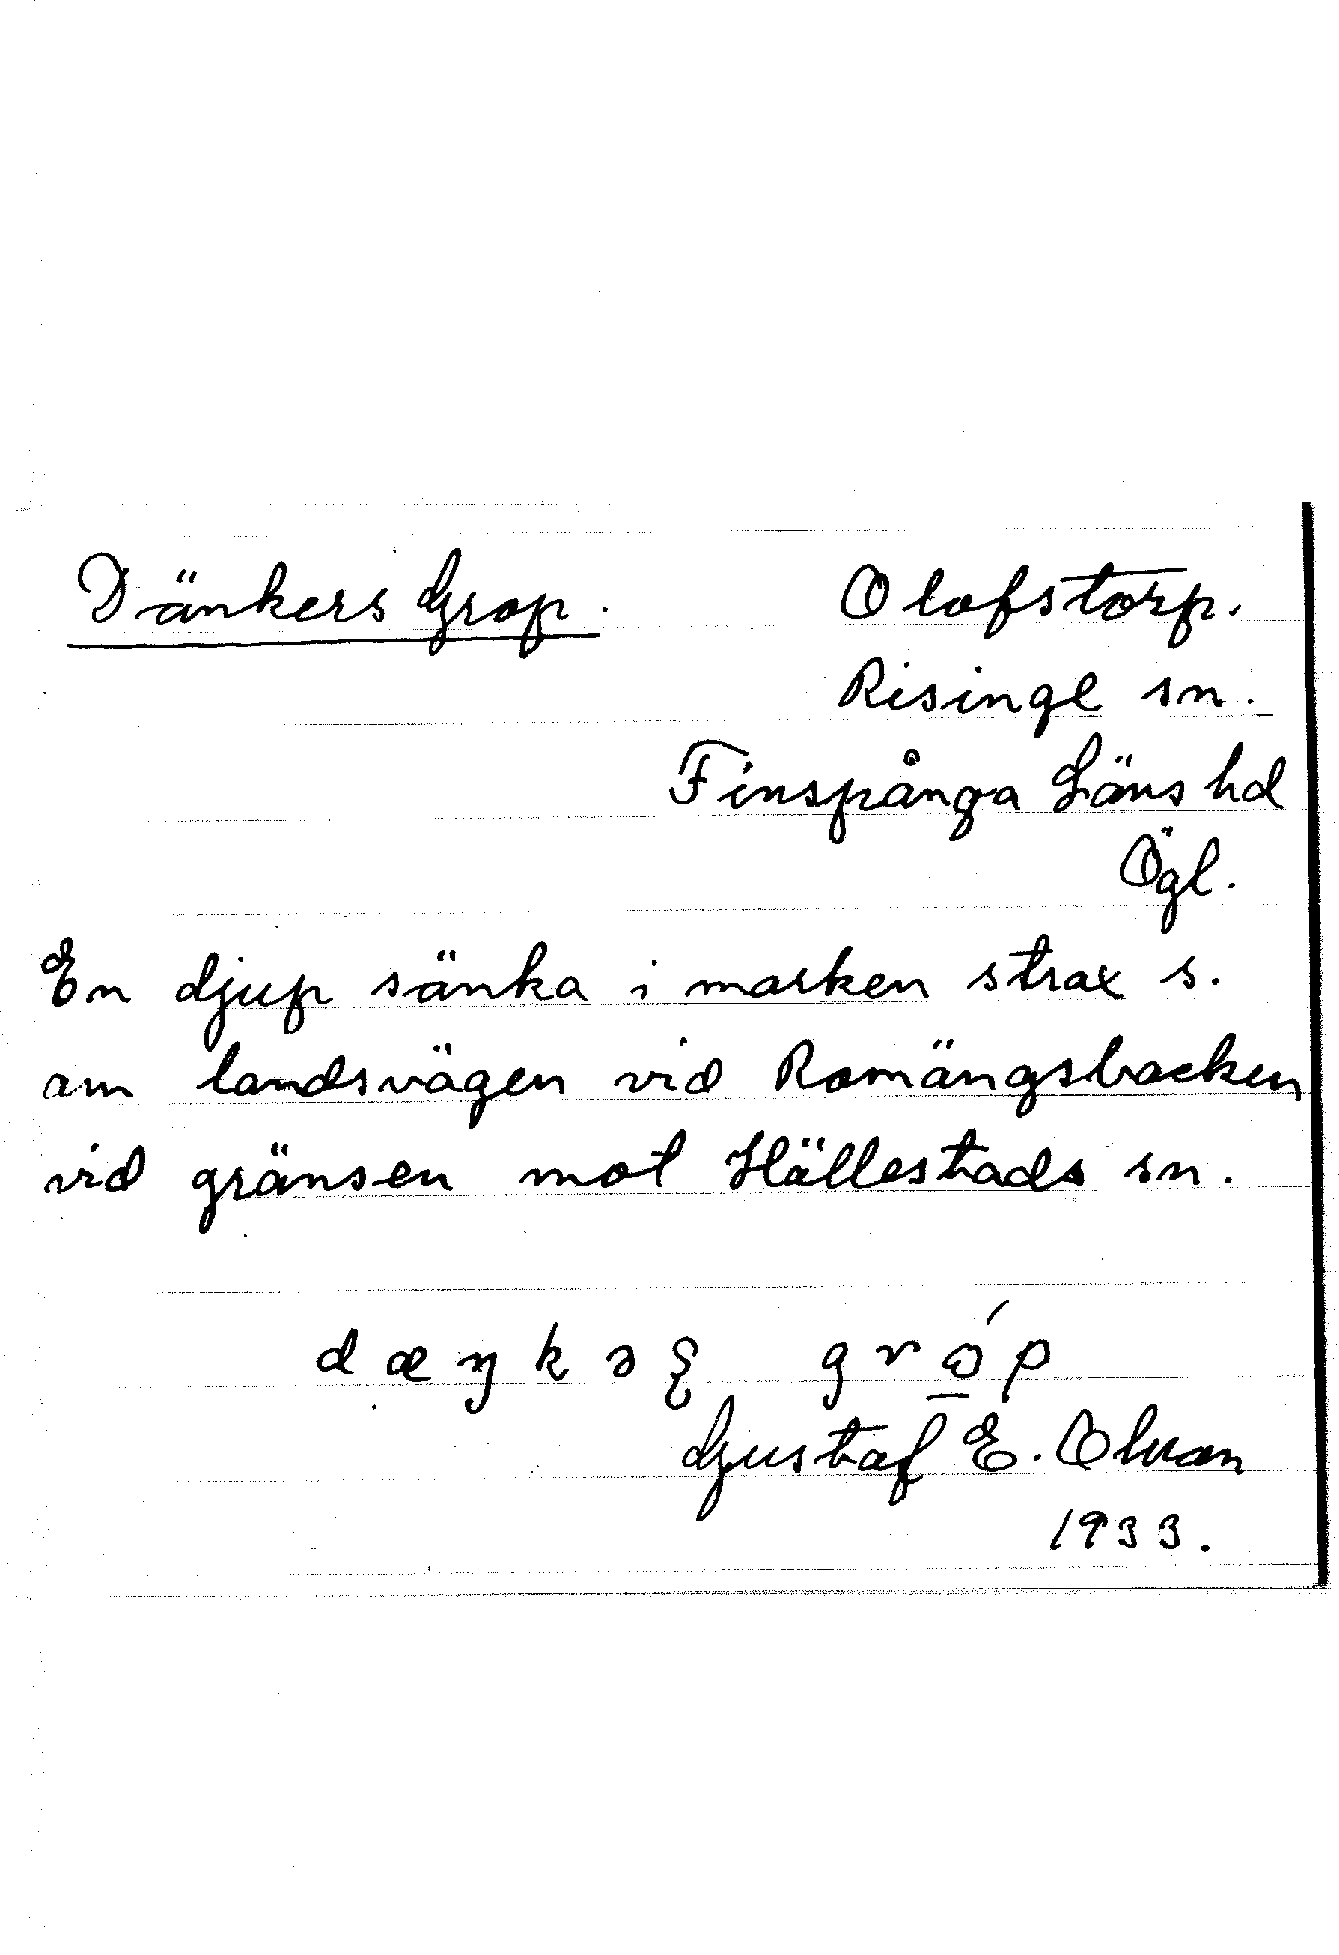 Dänkers Grop. Olofstorp.
Risinge sn.
Finspånga Läns hd
Ögl.
En djup sänka i marken strax s.
om landsvägen vid Romängsbacken
vid gränsen mot Hällestads sn.
dæŋkəʂ
Gustaf E.
1933.